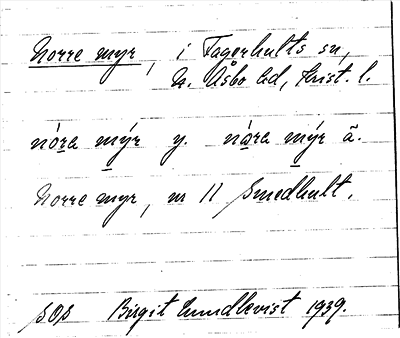 Norre myr, i Fagerhults sn,
N. Åsbo hd, Krist. l.
nóra mýr y. nóra mýr ä.
Norre myr, nr 11 Smedhult.
SOS Birgit Lundkvist 1939.